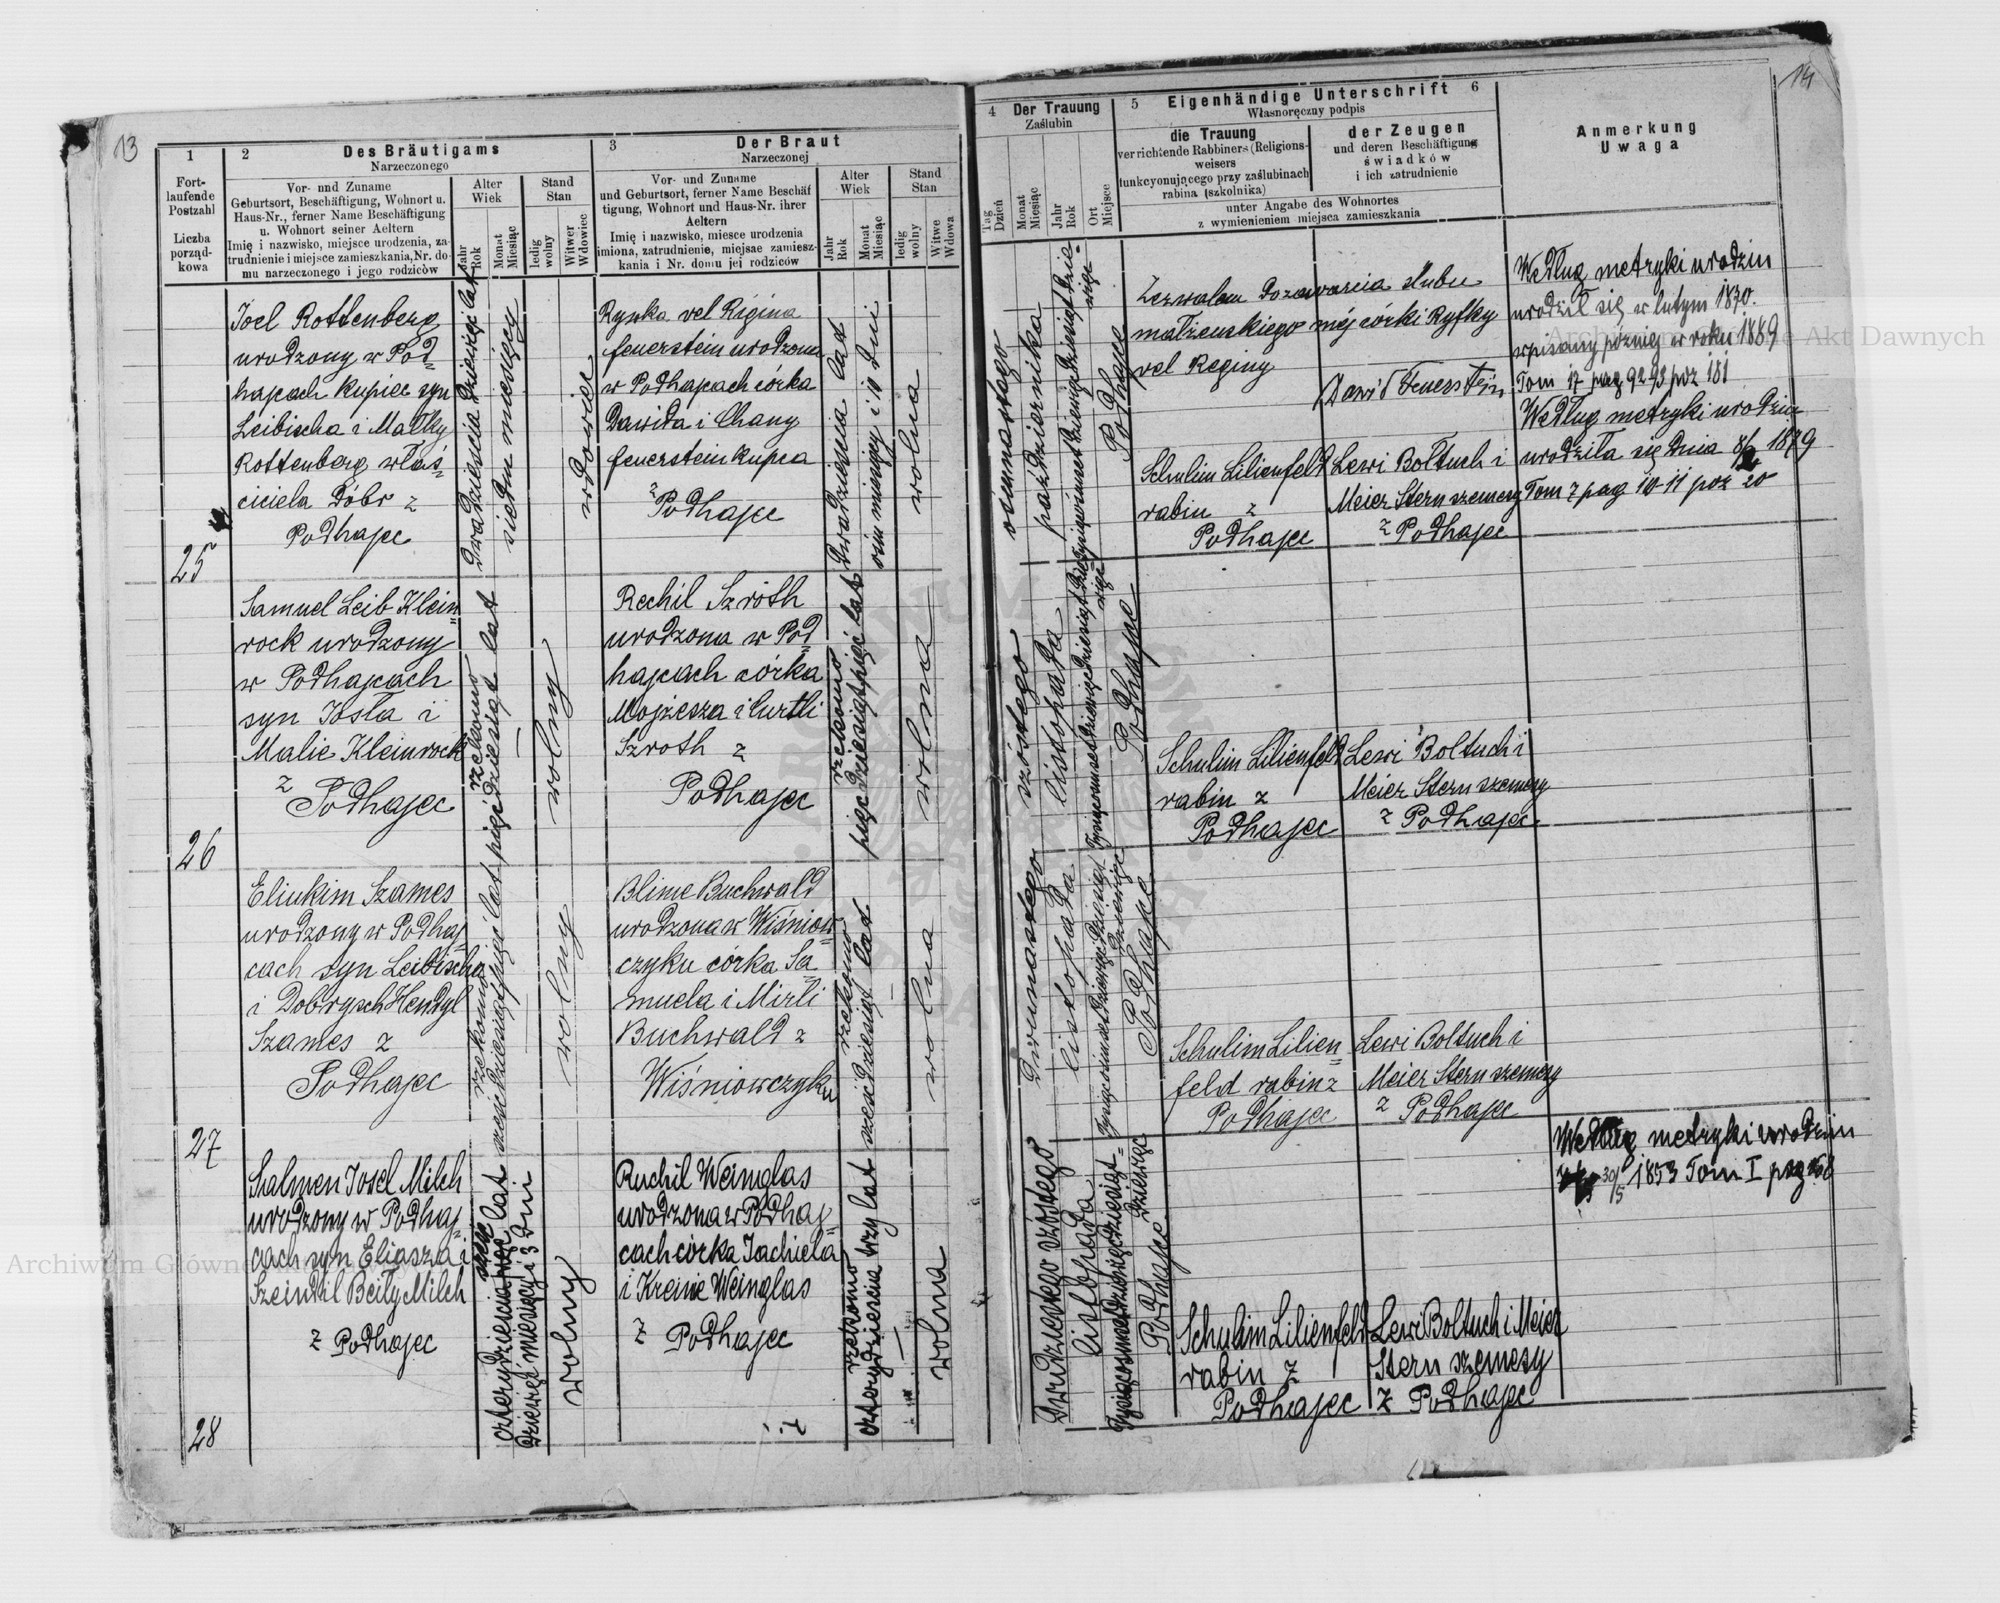 13
1
Fort-
laufende
Postzahl
Liczba
porząd-
kowa
2
Des Bräutigams
Narzeczonego
Vor- und Zuname
Geburtsort, Beschäftigung, Wohnort u.
Haus-Nr., ferner Name Beschäftigung
u. Wohnort seiner Aeltern
Imię i nazwisko, miejsce urodzenia, za-
trudnienie i miejsce zamieszkania, Nr. do-
mu narzeczonego i jego rodziców
Alter
Wiek
Jahr
Rok
Monat
Miesiąc
Stand
Stan
ledig
wolny
Witwer
Wdowiec
3
Der Braut
Narzeczonej
Vor- und Zuname
und Geburtsort, ferner Name Beschäf
tigung, Wohnort und Haus-Nr. ihrer
Aeltern
Imię i nazwisko, miesce urodzenia
imiona, zatrudnienie, miejsae zamiesz-
kania i Nr. domu jej rodziców
Alter
Wiek
Jahr
Rok
Monat
Miesiąc
Stand
Stan
ledig
wolny
Witwe
Wdowa
25
Joel Rottenberg
urodzony w Pod=
hajcach kupiec syn
Leibischa i Malky
Rottenberg właś=
ciciela dóbr z
Podhajec
Dwadzieścia dziewięć lat
siedm miesięcy
wdowiec
Ryfka vel Rigina
Feuerstein urodzona
w Podhajcach córka
Dawida i Chany
Feuerstein kupca
z
Podhajec
Dwadzieścia lat
osm miesięcy i 10 dni
wolna
26
Samuel Leib Klein=
rock urodzony
w Podhajcach
syn Josla i
Malie Kleinrock
z
Podhajec
rzekomo
pięćdziesiąt lat
wolny
Rechil Szroth
urodzona w Pod=
hajcach córka
Mojżesza i
Szroth z
Podhajec
rzekomo
pięćdziesiąt pięć lat
wolna
27
Eliukim Szames
urodzony w Podhaj=
cach syn Leibischa
i Dobrysch Hendyl
Szames z
Podhajec
rzekomo
sześćdziesiąt pięć lat
wolny
Blime Buchwald
urodzona w Wiśniow=
czyku córka Sa=
muela i Mirli
Buchwald z
Wiśniowczyku
rzekomo
sześćdziesiąt lat
wolna
28
Salmen Josel Milch
urodzony w Podhaj=
cach syn Eliasza i
Szeindil Beily Milch
z Podhajec
czterydzieści sześć lat
dziewięć miesięcy i 3 dni
wolny
Ruchil Weinglas
urodzona w Podhaj=
cach córka Jachiela
i Kreine Weinglas
z Podhajec
rzekomo
czterydzieścia trzy lat
wolna
14
4
Der Trauung
Zaślubin
Tag
Dzień
Monat
Miesiąc
Jahr
Rok
Ort
Miejsce
5
Eigenhändige Unterschrift
6
Własnoręczny podpis
die Trauung
verrichtende Rabbiners (Religions-
weisers
funkcyonującego przy zaślubinach
rabina (szkolnika)
der Zeugen
und deren Beschäftigung
świadków
i ich zatrudnienie
unter Angabe des Wohnortes
z wymienieniem miejsca zamieszkania
Anmerkung
Uwaga
ośmnastego
października
Podhajce
Zezwalam do zawarcia ślubu
małżeńskiego mej córki Ryfky
vel Reginy
Dawid Feuerstein
Schulim Lilienfeld
rabin z
Podhajec
Lewi Boltuch i
Meier Stern szemesy
z Podhajec
Według metryki urodzin
urodził się w lutym 1870.
wpisany później w roku 1889
Tom 17 pag 92 93 poz 181
Według metryki urodzin
urodziła się dnia 8/2 1879
Tom 7 pag 10-11 poz 20
szóstego
listopada
Podhajce
Schulim Lilienfeld
rabin z
Podhajec
Lewi Boltuch i
Meier Stern szemesy
z Podhajec
Dwunastego
listopada
Podhajce
Schulim Lilien=
feld rabin z
Podhajec
Lewi Boltuch i
Meier Stern szemesy
z Podhajec
Dwudziestego szóstego
listopada
Podhajce
Schulim Lilienfeld
rabin z
Podhajec
Lewi Boltuch i Meier
Stern szemesy
z Podhajec
Według metryki urodzin
1853 Tom I pag
Archiwum Główne Akt Dawnych
Archiwum Główne